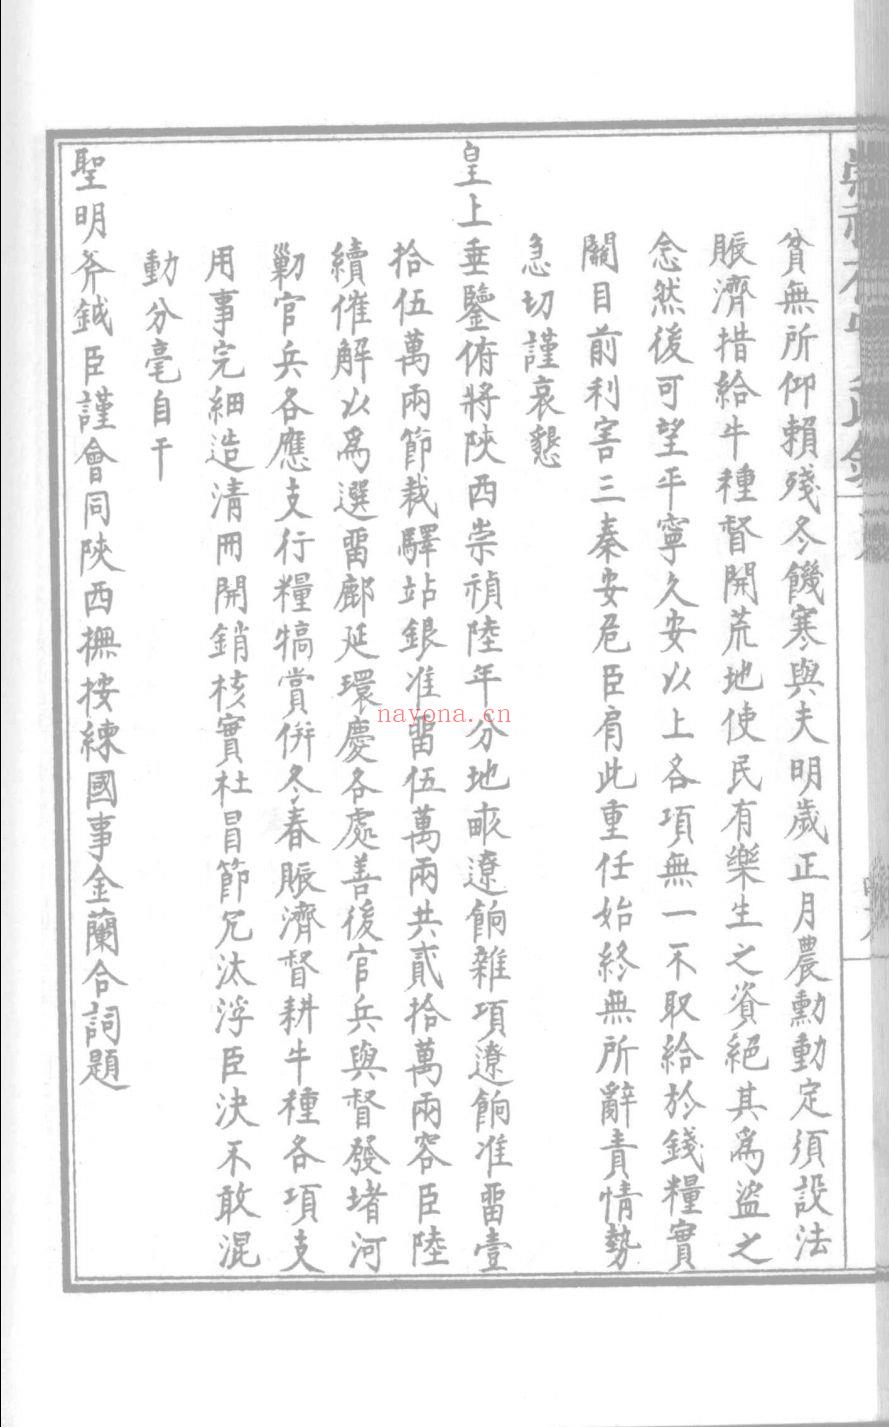 貧無所仰賴殘冬饑寒與夫明歲正月農勳動定須設法
賑濟措給牛種督開荒地使民有樂生之資絕其為盜之
念然後可望平寧久安以上各項無一不取給於錢糧實
關目前利害三秦安危臣肩此重任始終無所辭責情勢
急切謹哀懇
皇上垂鑒俯將陝西崇禎陸年分地畝遼餉雜項遼餉准畱壹
拾伍萬兩節裁驛站銀准畱伍萬兩共貳拾萬兩容臣陸
續催解以為選畱鄜延環慶各處善後官兵與督發堵河
勦官兵各應支行糧犒賞併冬春賑濟督耕牛種各項支
用事完細造清冊開銷核實杜冒節冗汰浮臣決不敢混
動分毫自干
聖明斧鉞臣謹會同陝西撫按練國事金蘭合詞題
nayona.cn